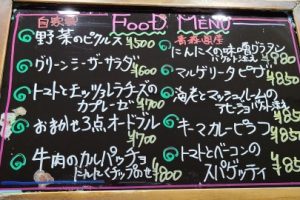 FOOD MENU
自家製
野菜のピクルス ¥500
グリーンシーザーサラダ ¥600
トマトとモッツァレラチーズの
カプレーゼ ¥700
おまかせ3点オードブル
¥700
牛肉のカルパッチョ
にんにくチップのせ ¥800
青森県産
にんにく味噌グラタン
バゲット添え ¥980
マルゲリータピザ ¥850
海老とマッシュルームの
アヒージョ バゲット添え
¥850
キーマカレーピラフ
¥850
トマトとベーコンの
スパゲッティ ¥850